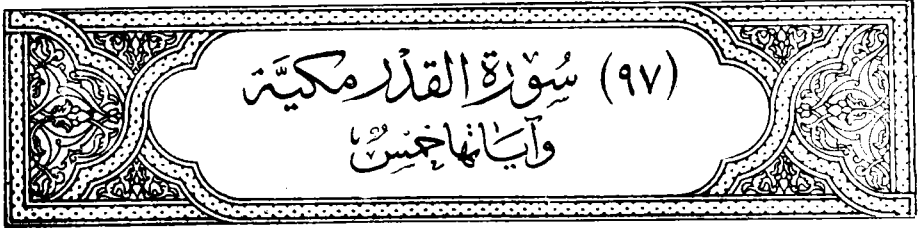 (٩٧) سُوْرَةُ القَدْرِ مَكِيَّة
وَآيَاتُهَا خَمْسٌ